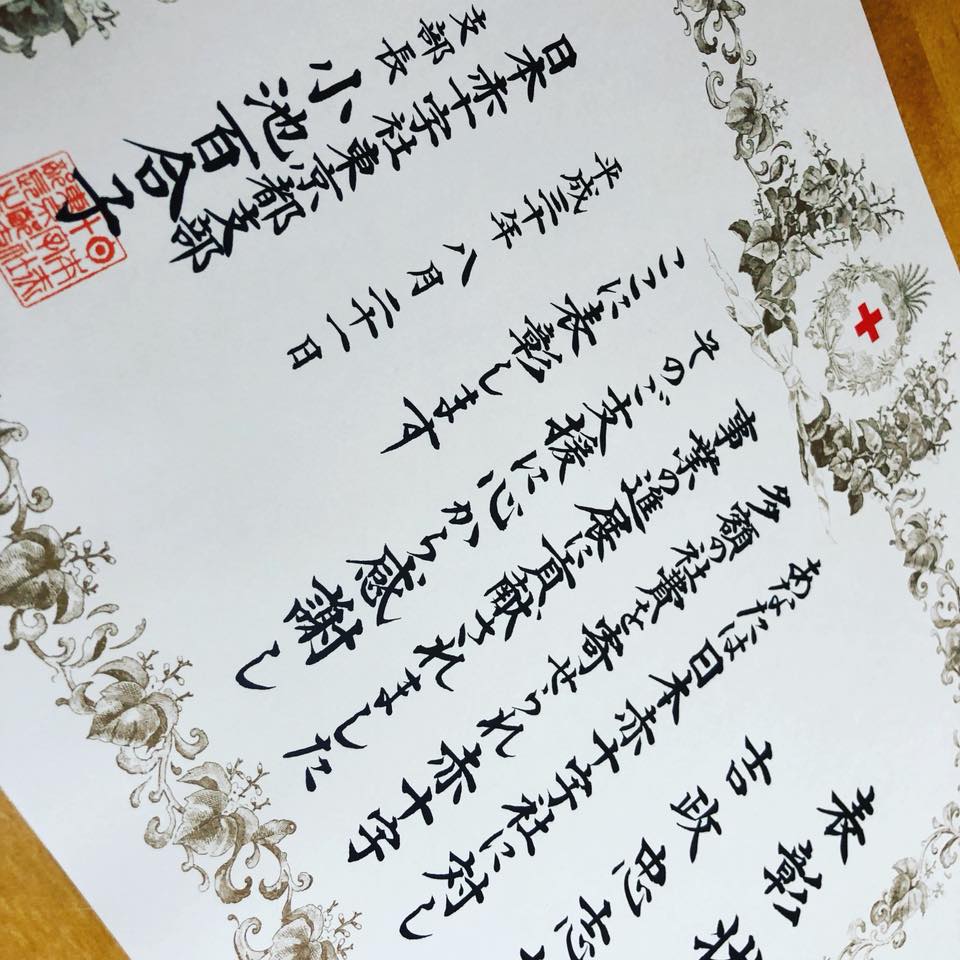 表彰状
吉政忠志
あなたは日本赤十字社に対し
多額の社費を寄せられ赤十字
事業の進展に貢献されました
そのご支援に心から感謝し
ここに表彰します
平成三十年八月二十一日
日本赤十字社東京都支部
支部長
小池百合子